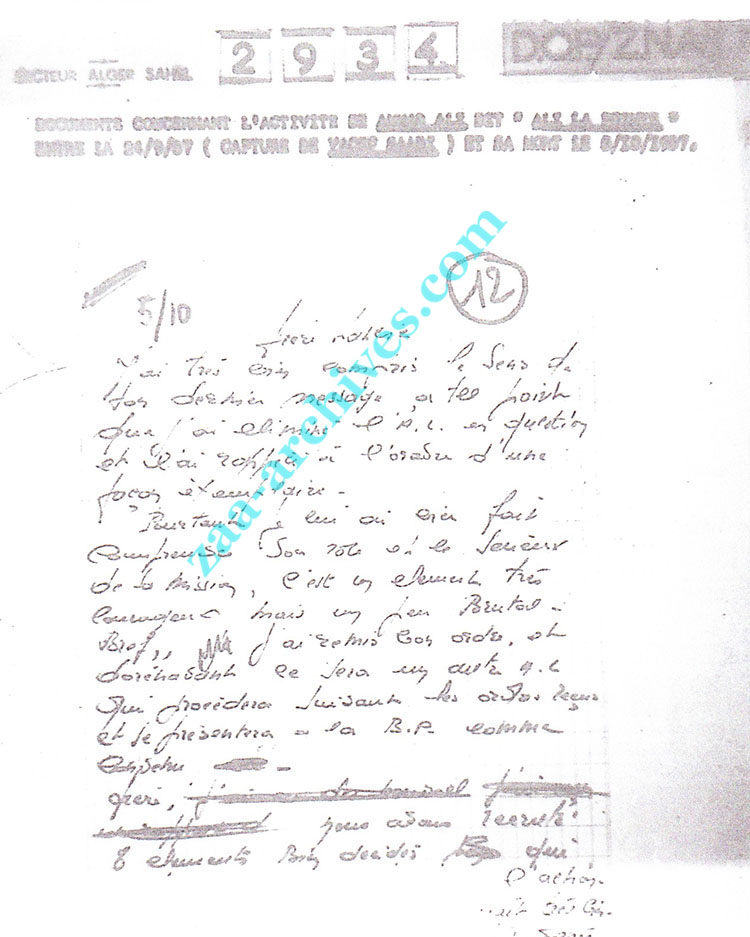 SECTEUR ALGER SAHEL
2 9 3 4
D.O.P/ZNA
DOCUMENTS CONCERNANT L'ACTIVITE DE AMMAR ALI DIT " ALI LA POINTE "
ENTRE LA 24/9/57 ( CAPTURE DE YACEF SAADI ) ET SA MORT LE 8/10/1957.
12
5/10
J'ai très bien compris le sens de
ton dernier message, a tel point
que j'ai eliminé l'A.L. en question
et l'ai rappelé à l'ordre d'une
façon exemplaire -
Pourtant je lui ai bien fait
comprendre son rôle et le serieux
de la mission, c'est un element très
courageux mais un peu Brutal -
Bref,, j'ai remis bon ordre, et
dorénavant ce sera un autre A.L
qui procèdera suivant les ordres reçus
et se présentera a la B.P. comme
convenu -
frère,
nous avons recruté
8 elements Bien decidés qui
l'action
zaa-archives.com